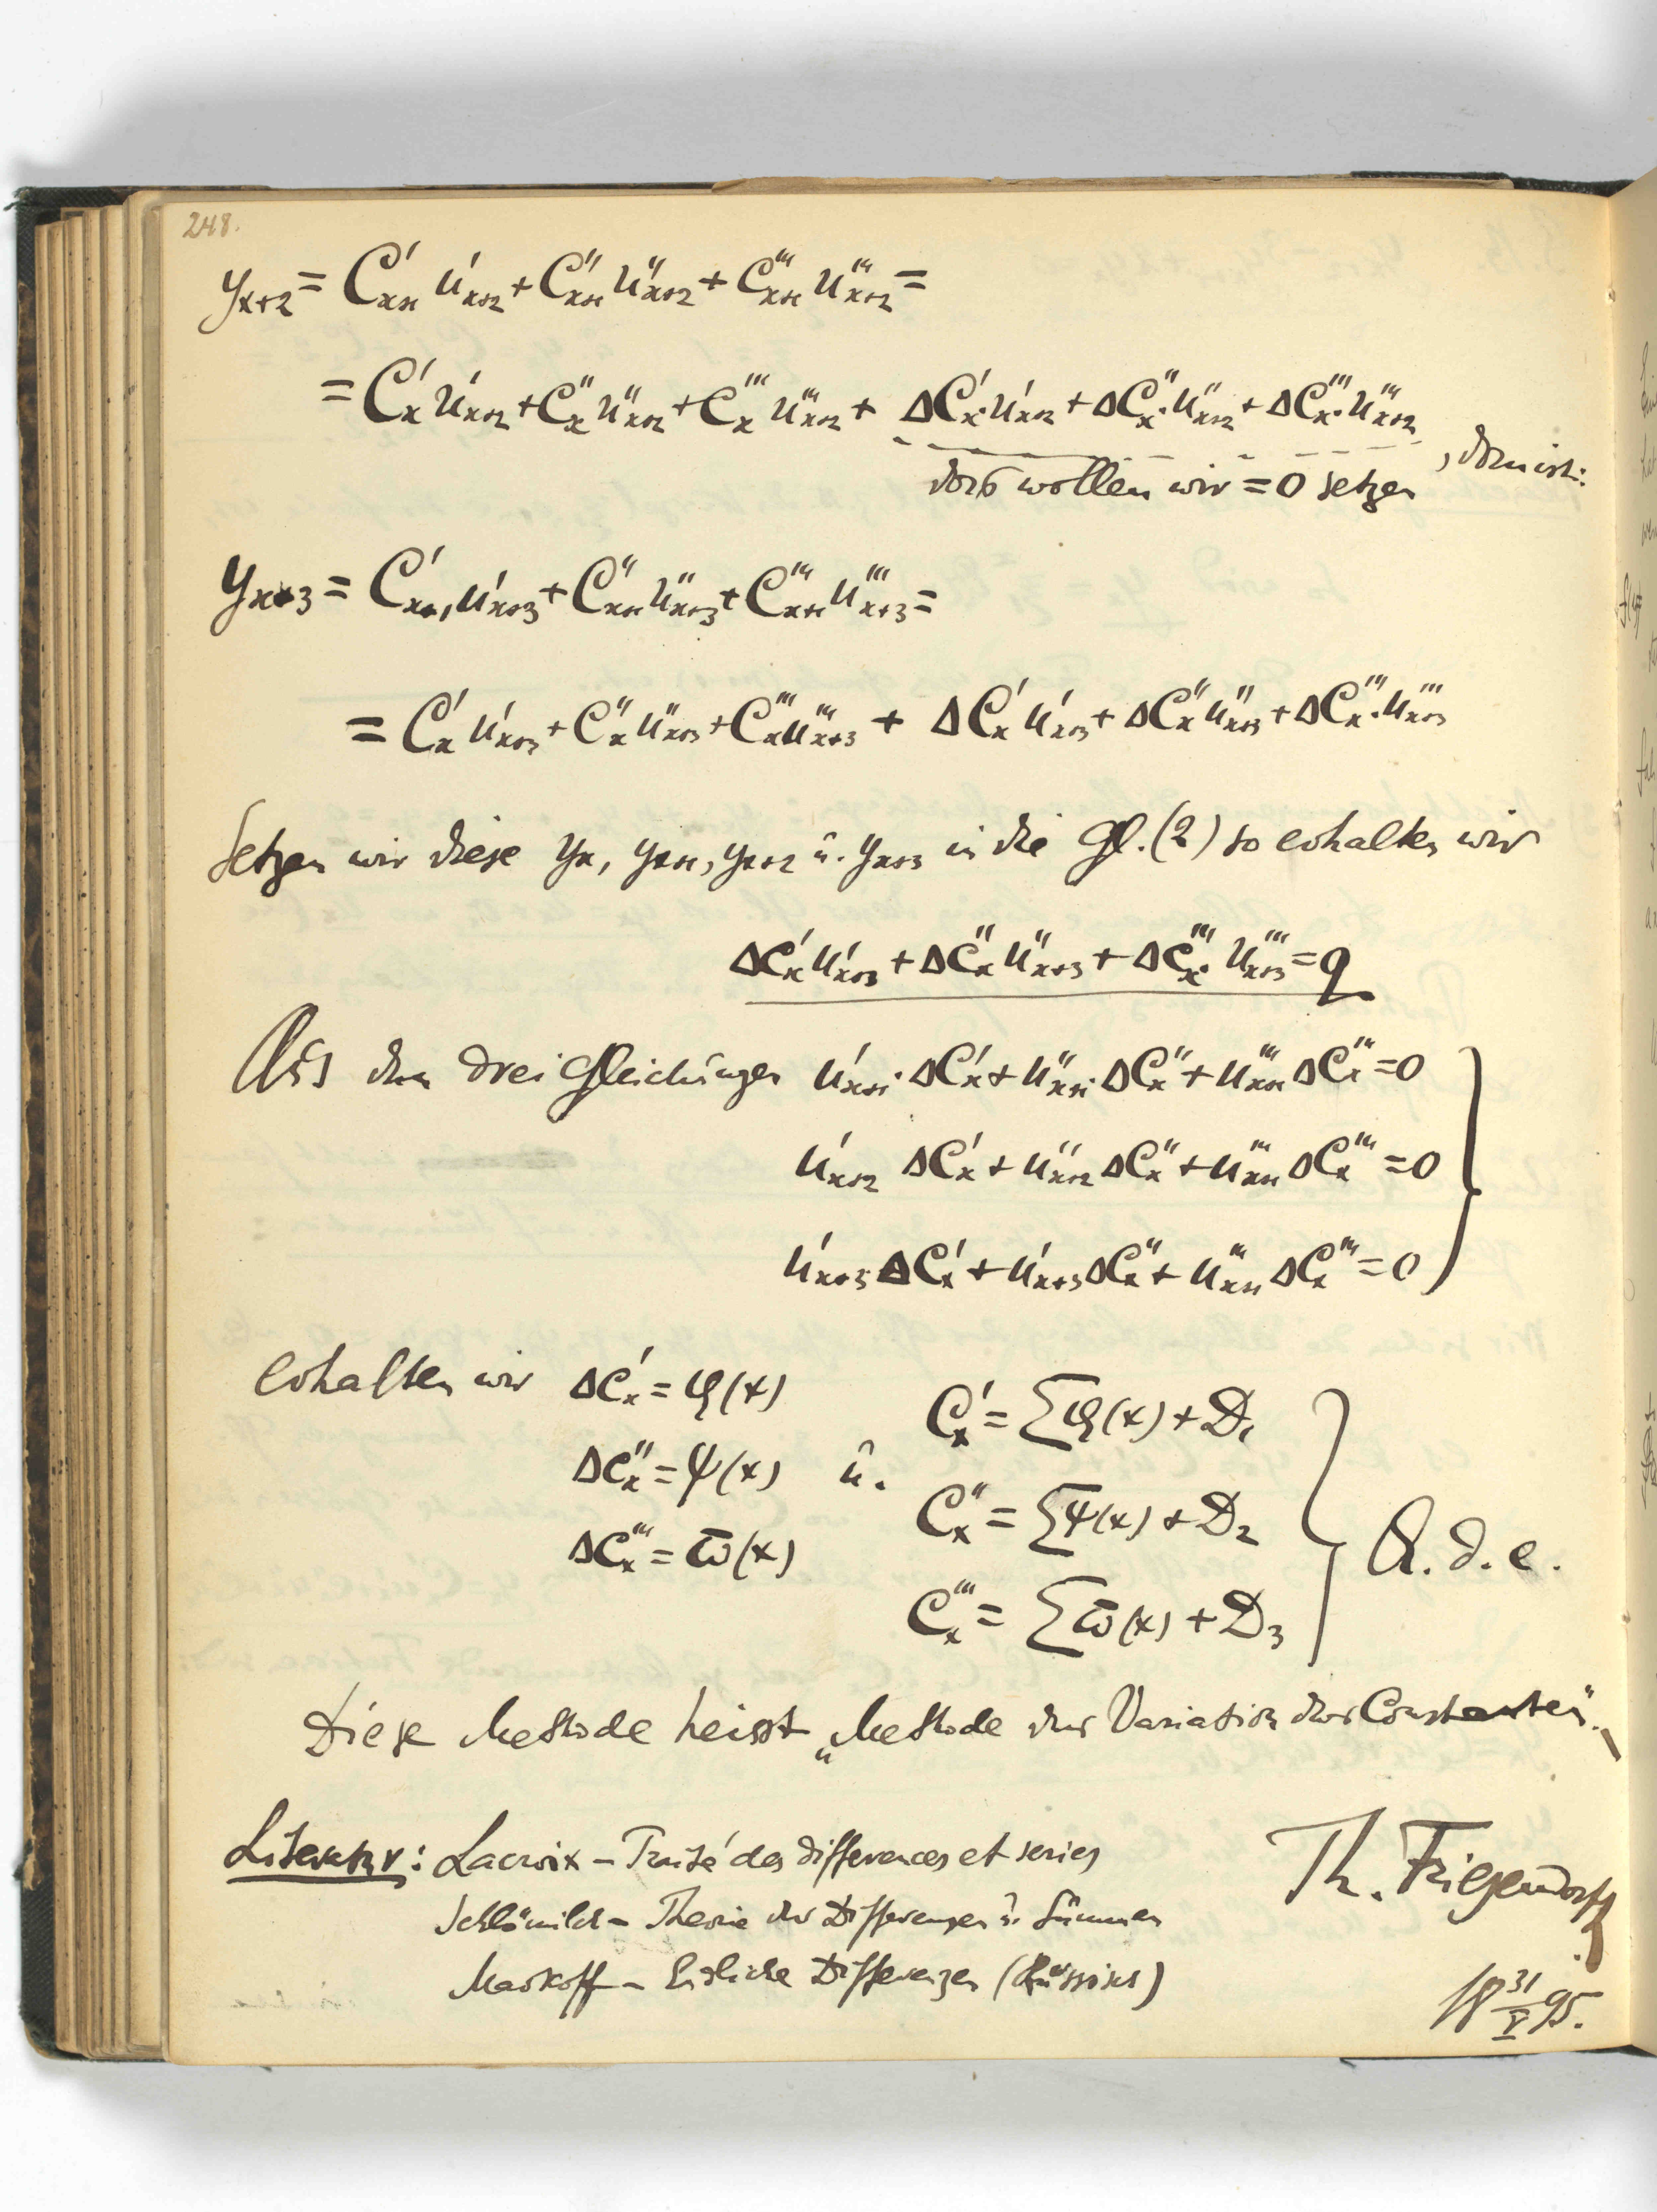 248.
y_{x+2} = C'_{x+1} u'_{x+2} + C''_{x+1} u''_{x+2} + C'''_{x+1} u'''_{x+2} =
= C'_x u'_{x+2} + C''_x u''_{x+2} + C'''_x u'''_{x+2} + ΔC'_x · u'_{x+2} + ΔC''_x · u''_{x+2} + ΔC'''_x · u'''_{x+2}
das wollen wir = 0 setzen, dann ist:
y_{x+3} = C'_{x+1} u'_{x+3} + C''_{x+1} u''_{x+3} + C'''_{x+1} u'''_{x+3} =
= C'_x u'_{x+3} + C''_x u''_{x+3} + C'''_x u'''_{x+3} + ΔC'_x u'_{x+3} + ΔC''_x u''_{x+3} + ΔC'''_x · u'''_{x+3}
Setzen wir diese y_x, y_{x+1}, y_{x+2} u. y_{x+3} in die Gl. (2) so erhalten wir
ΔC'_x u'_{x+3} + ΔC''_x u''_{x+3} + ΔC'''_x · u'''_{x+3} = q
Aus den drei Gleichungen u'_{x+1} · ΔC'_x + u''_{x+1} · ΔC''_x + u'''_{x+1} ΔC'''_x = 0
u'_{x+2} ΔC'_x + u''_{x+2} ΔC''_x + u'''_{x+1} ΔC'''_x = 0
u'_{x+3} ΔC'_x + u'_{x+3} ΔC''_x + u'''_{x+1} ΔC'''_x = 0
erhalten wir ΔC'_x = φ(x)
ΔC''_x = ψ(x) u.
ΔC'''_x = ϖ(x)
C'_x = Σφ(x) + D_1
C''_x = Σψ(x) + D_2
C'''_x = Σϖ(x) + D_3
Q.d.e.
Diese Methode heisst „Methode der Variation der Constanten". –
Literatur: Lacroix – Traité des differences et series
Schlömilch – Theorie der Differenzen u. Summen
Markoff – Endliche Differenzen (Russisch)
Th. Friesendorff.
18 31/V 95.